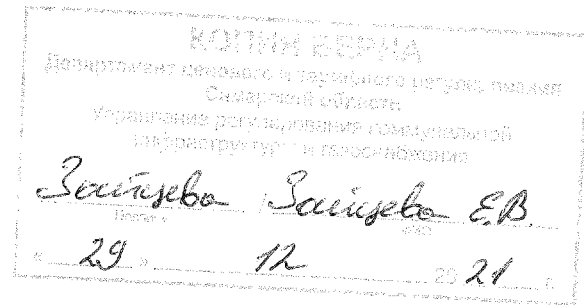 КОПИЯ ВЕРНА
Департамент ценового и тарифного регулирования
Самарской области
Управление регулирования коммунальной
инфраструктуры и газоснабжения
Зайцева / Зайцева Е.В.
ФИО
« 29 » 12 20 21 г.